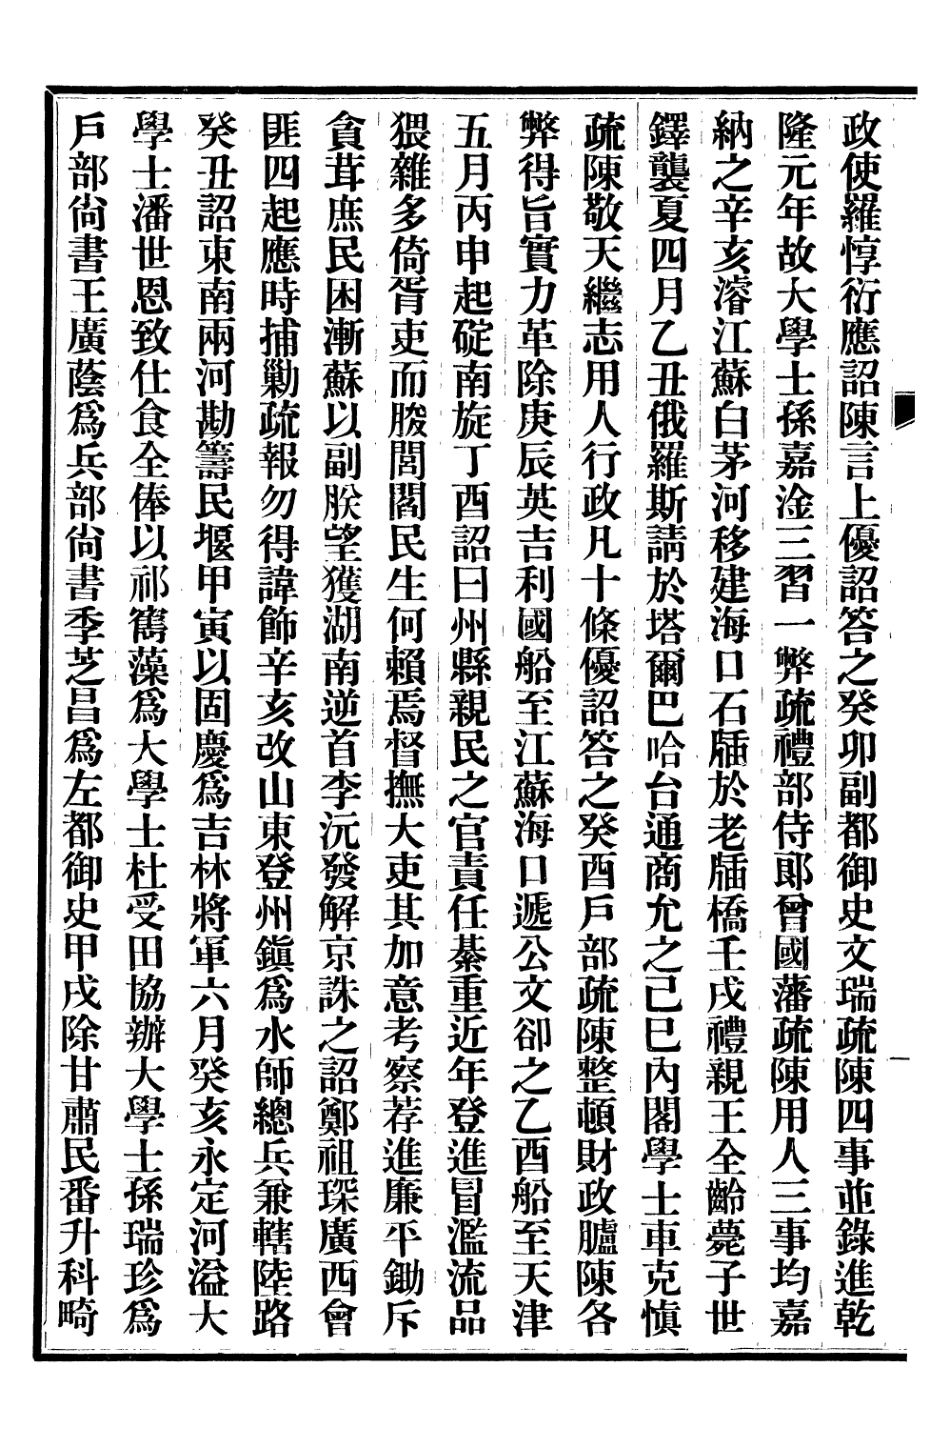 政使羅惇衍應詔陳言上優詔答之癸卯副都御史文瑞疏陳四事並錄進乾
隆元年故大學士孫嘉淦三習一弊疏禮部侍郎曾國藩疏陳用人三事均嘉
納之辛亥濬江蘇白茅河移建海口石牐於老牐橋壬戌禮親王全齡薨子世
鐸襲夏四月乙丑俄羅斯請於塔爾巴哈台通商允之己巳內閣學士車克愼
疏陳敬天繼志用人行政凡十條優詔答之癸酉戶部疏陳整頓財政臚陳各
弊得旨實力革除庚辰英吉利國船至江蘇海口遞公文卻之乙酉船至天津
五月丙申起碇南旋丁酉詔曰州縣親民之官責任綦重近年登進冒濫流品
猥雜多倚胥吏而朘閭閻民生何賴焉督撫大吏其加意考察荐進廉平鋤斥
貪茸庶民困漸蘇以副朕望獲湖南逆首李沅發解京誅之詔鄭祖琛廣西會
匪四起應時捕勦疏報勿得諱飾辛亥改山東登州鎭爲水師總兵兼轄陸路
癸丑詔東南兩河勘籌民堰甲寅以固慶爲吉林將軍六月癸亥永定河溢大
學士潘世恩致仕食全俸以祁寯藻爲大學士杜受田協辦大學士孫瑞珍爲
戶部尙書王廣蔭爲兵部尙書季芝昌爲左都御史甲戌除甘肅民番升科畸